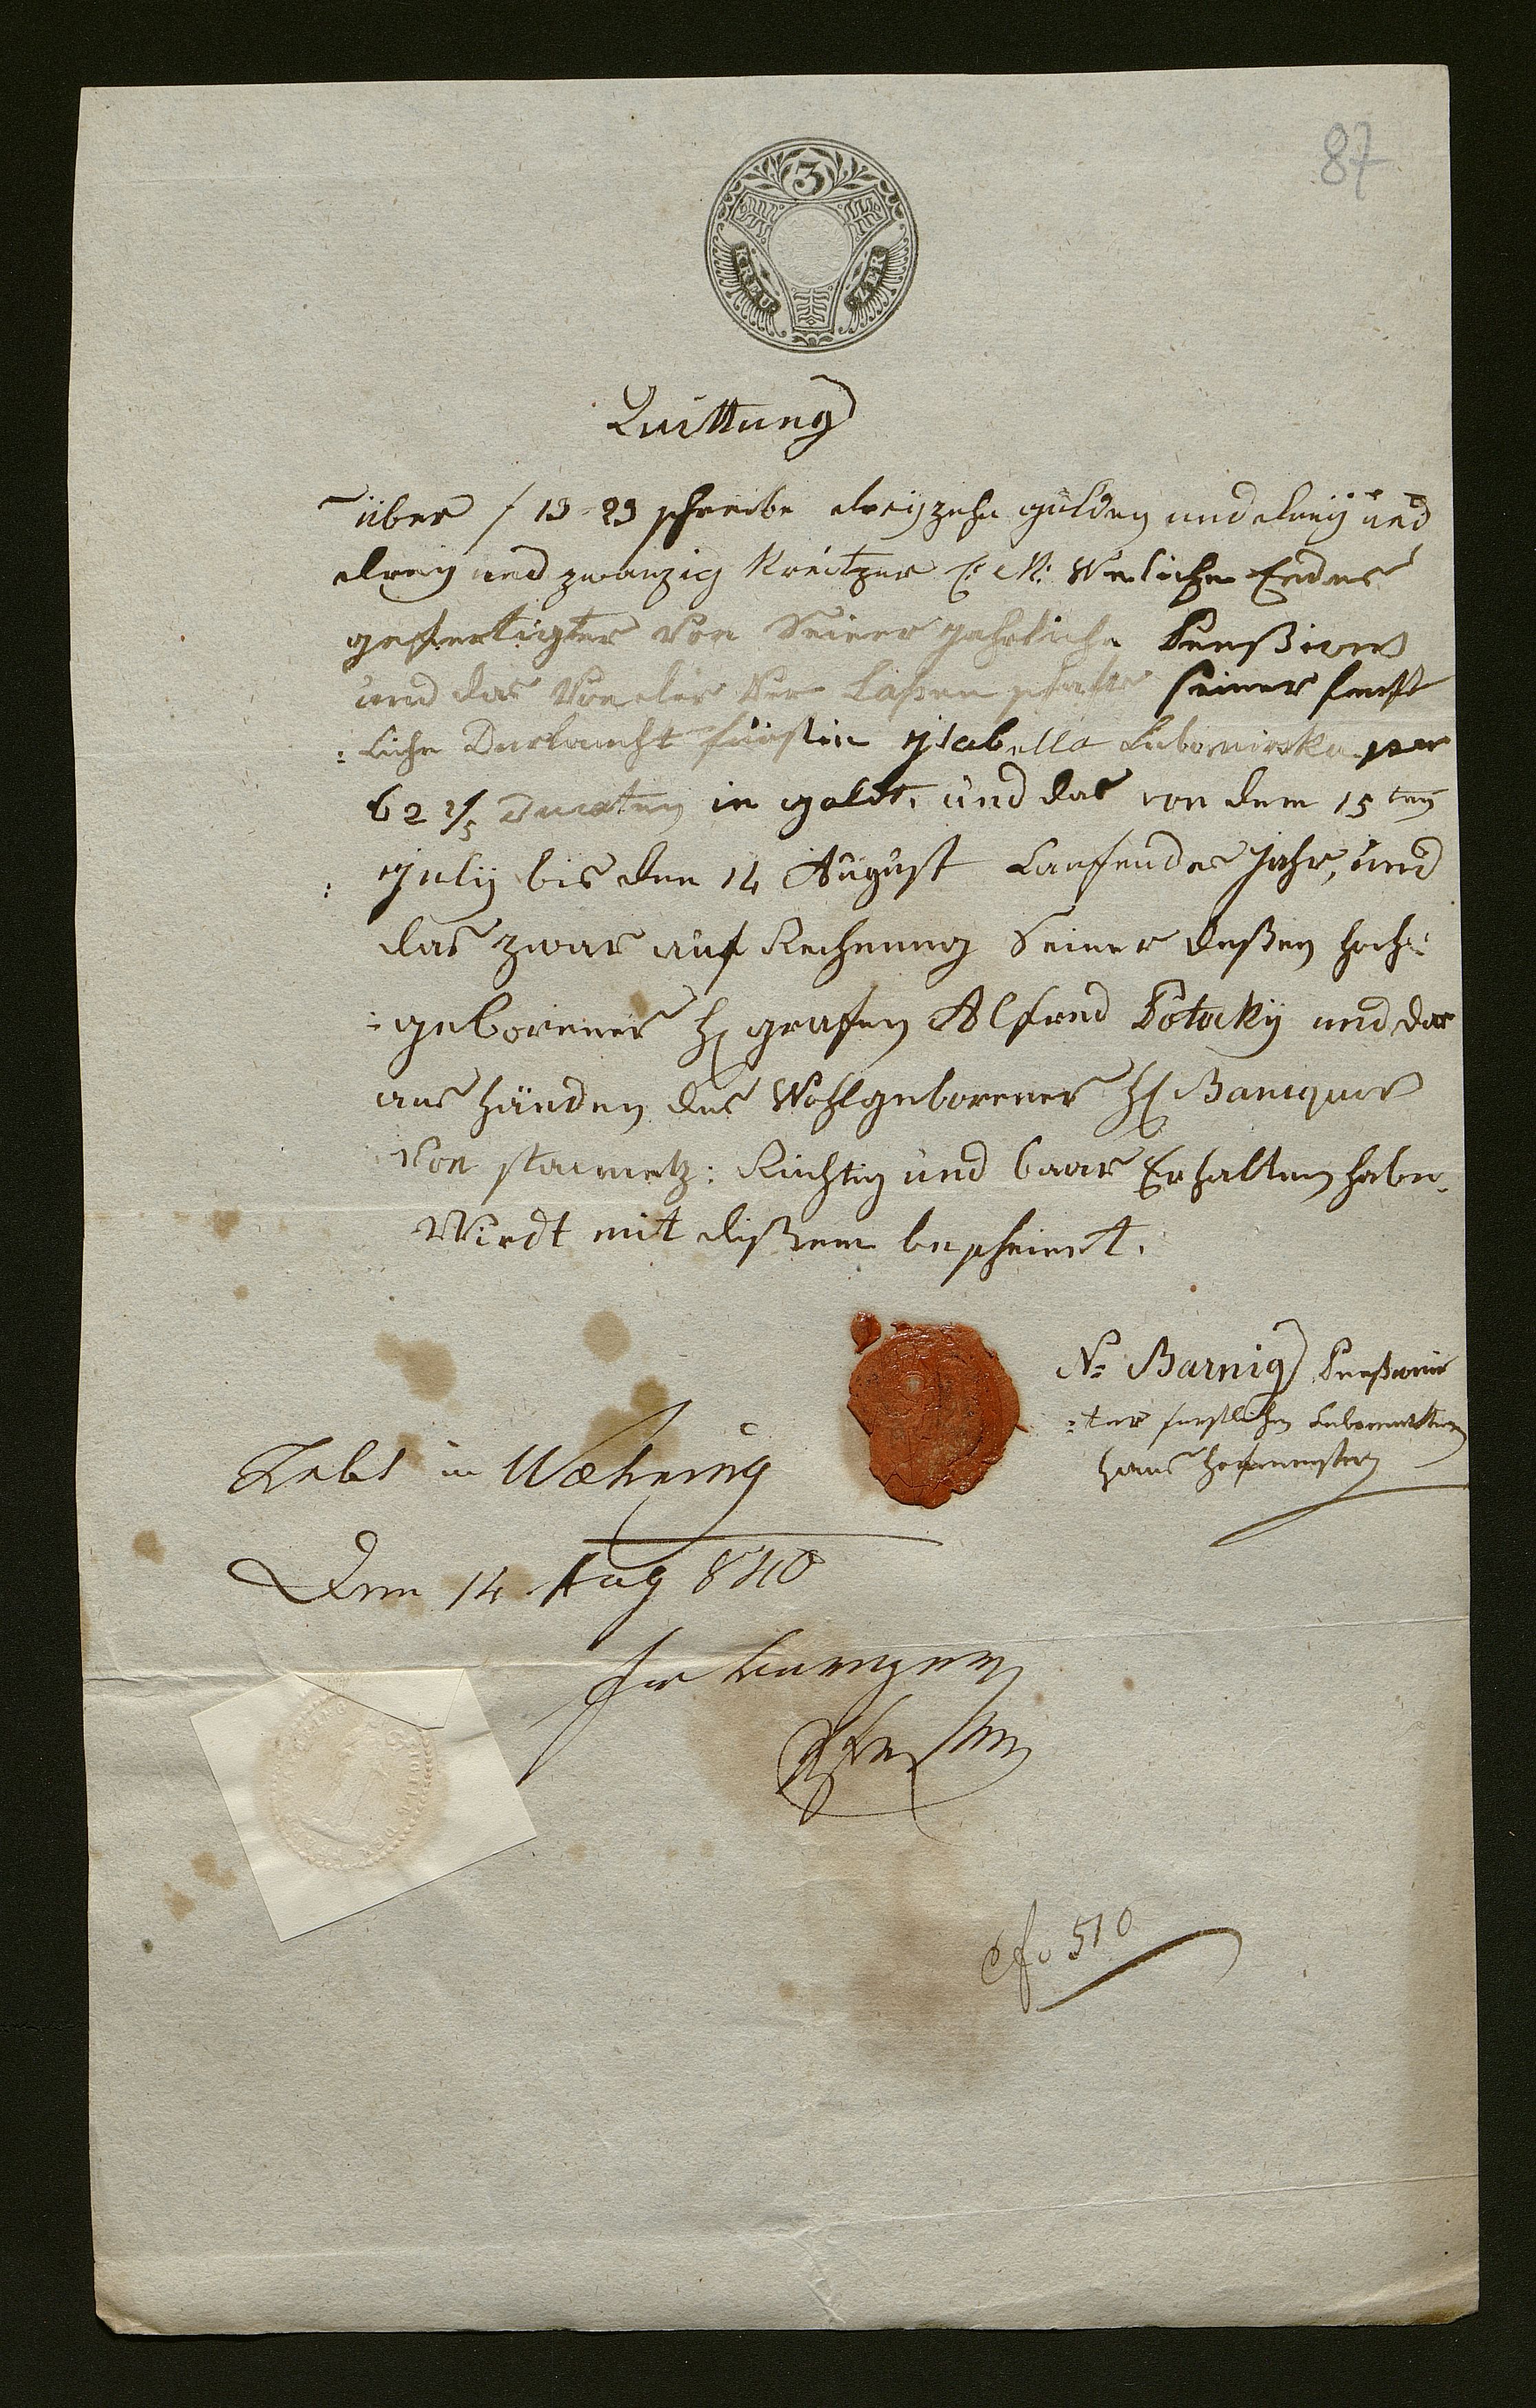 87
3
KREU ZER
Quittung
über f 13 23 schreibe dreyzehn gulden und dreÿ und
dreÿ und zwanzig Kreitzer C: M: Weliche Endes
gefertigter von Seiner jahrliche Penßion
und das von der Ver laßenschafts seiner fürst
: liche Durlaucht fürstin ysabella Lubomirska per
62 2/5 Ducaten in goldt. und das von dem 15 ten
july bis den 14 August Laufendes Jahr, und
das zwar auf Rechnung Seiner deßen hoch:
: geborener H. grafen Alfred Potocky und das
aus händen des Wohlgeborener H. Banquer
von stametz: Richtig und baar Erhalten habe.
Wirdt mit dißem bescheint.
N= Barnig Penßionir
:ter furstlichen Lubomirskischen
haus hofmeister
Lebt in Wæhring
Den 14 Aug 840
510